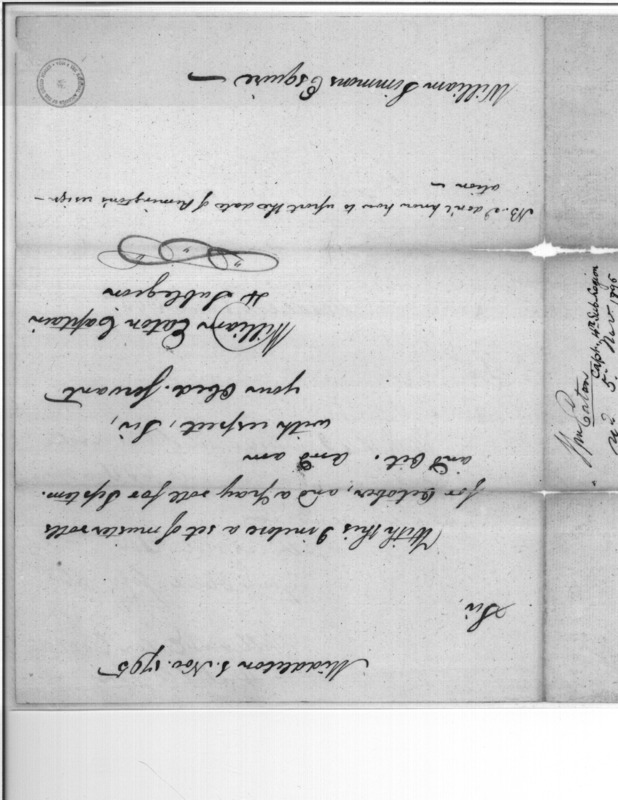 Middleton 5. Nov. 1795
Sir,
With this I inclose a set of muster rolls
for October, and a pay roll for Septem.
and Oct. And am
with respect, Sir,
your Obed. Servant
William Eaton Captain
4 Sublegion
NB. I don't know how to report the date of Remington's resign-
ation —
William Simmons Esquire —
Wm Eaton
Capt. 4th Sub Legion
5. Nov. 1795